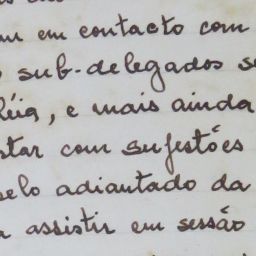 em contacto com
sub-delegados se
, e mais ainda
com sugestões
pelo adiantado da
assistir em sessão